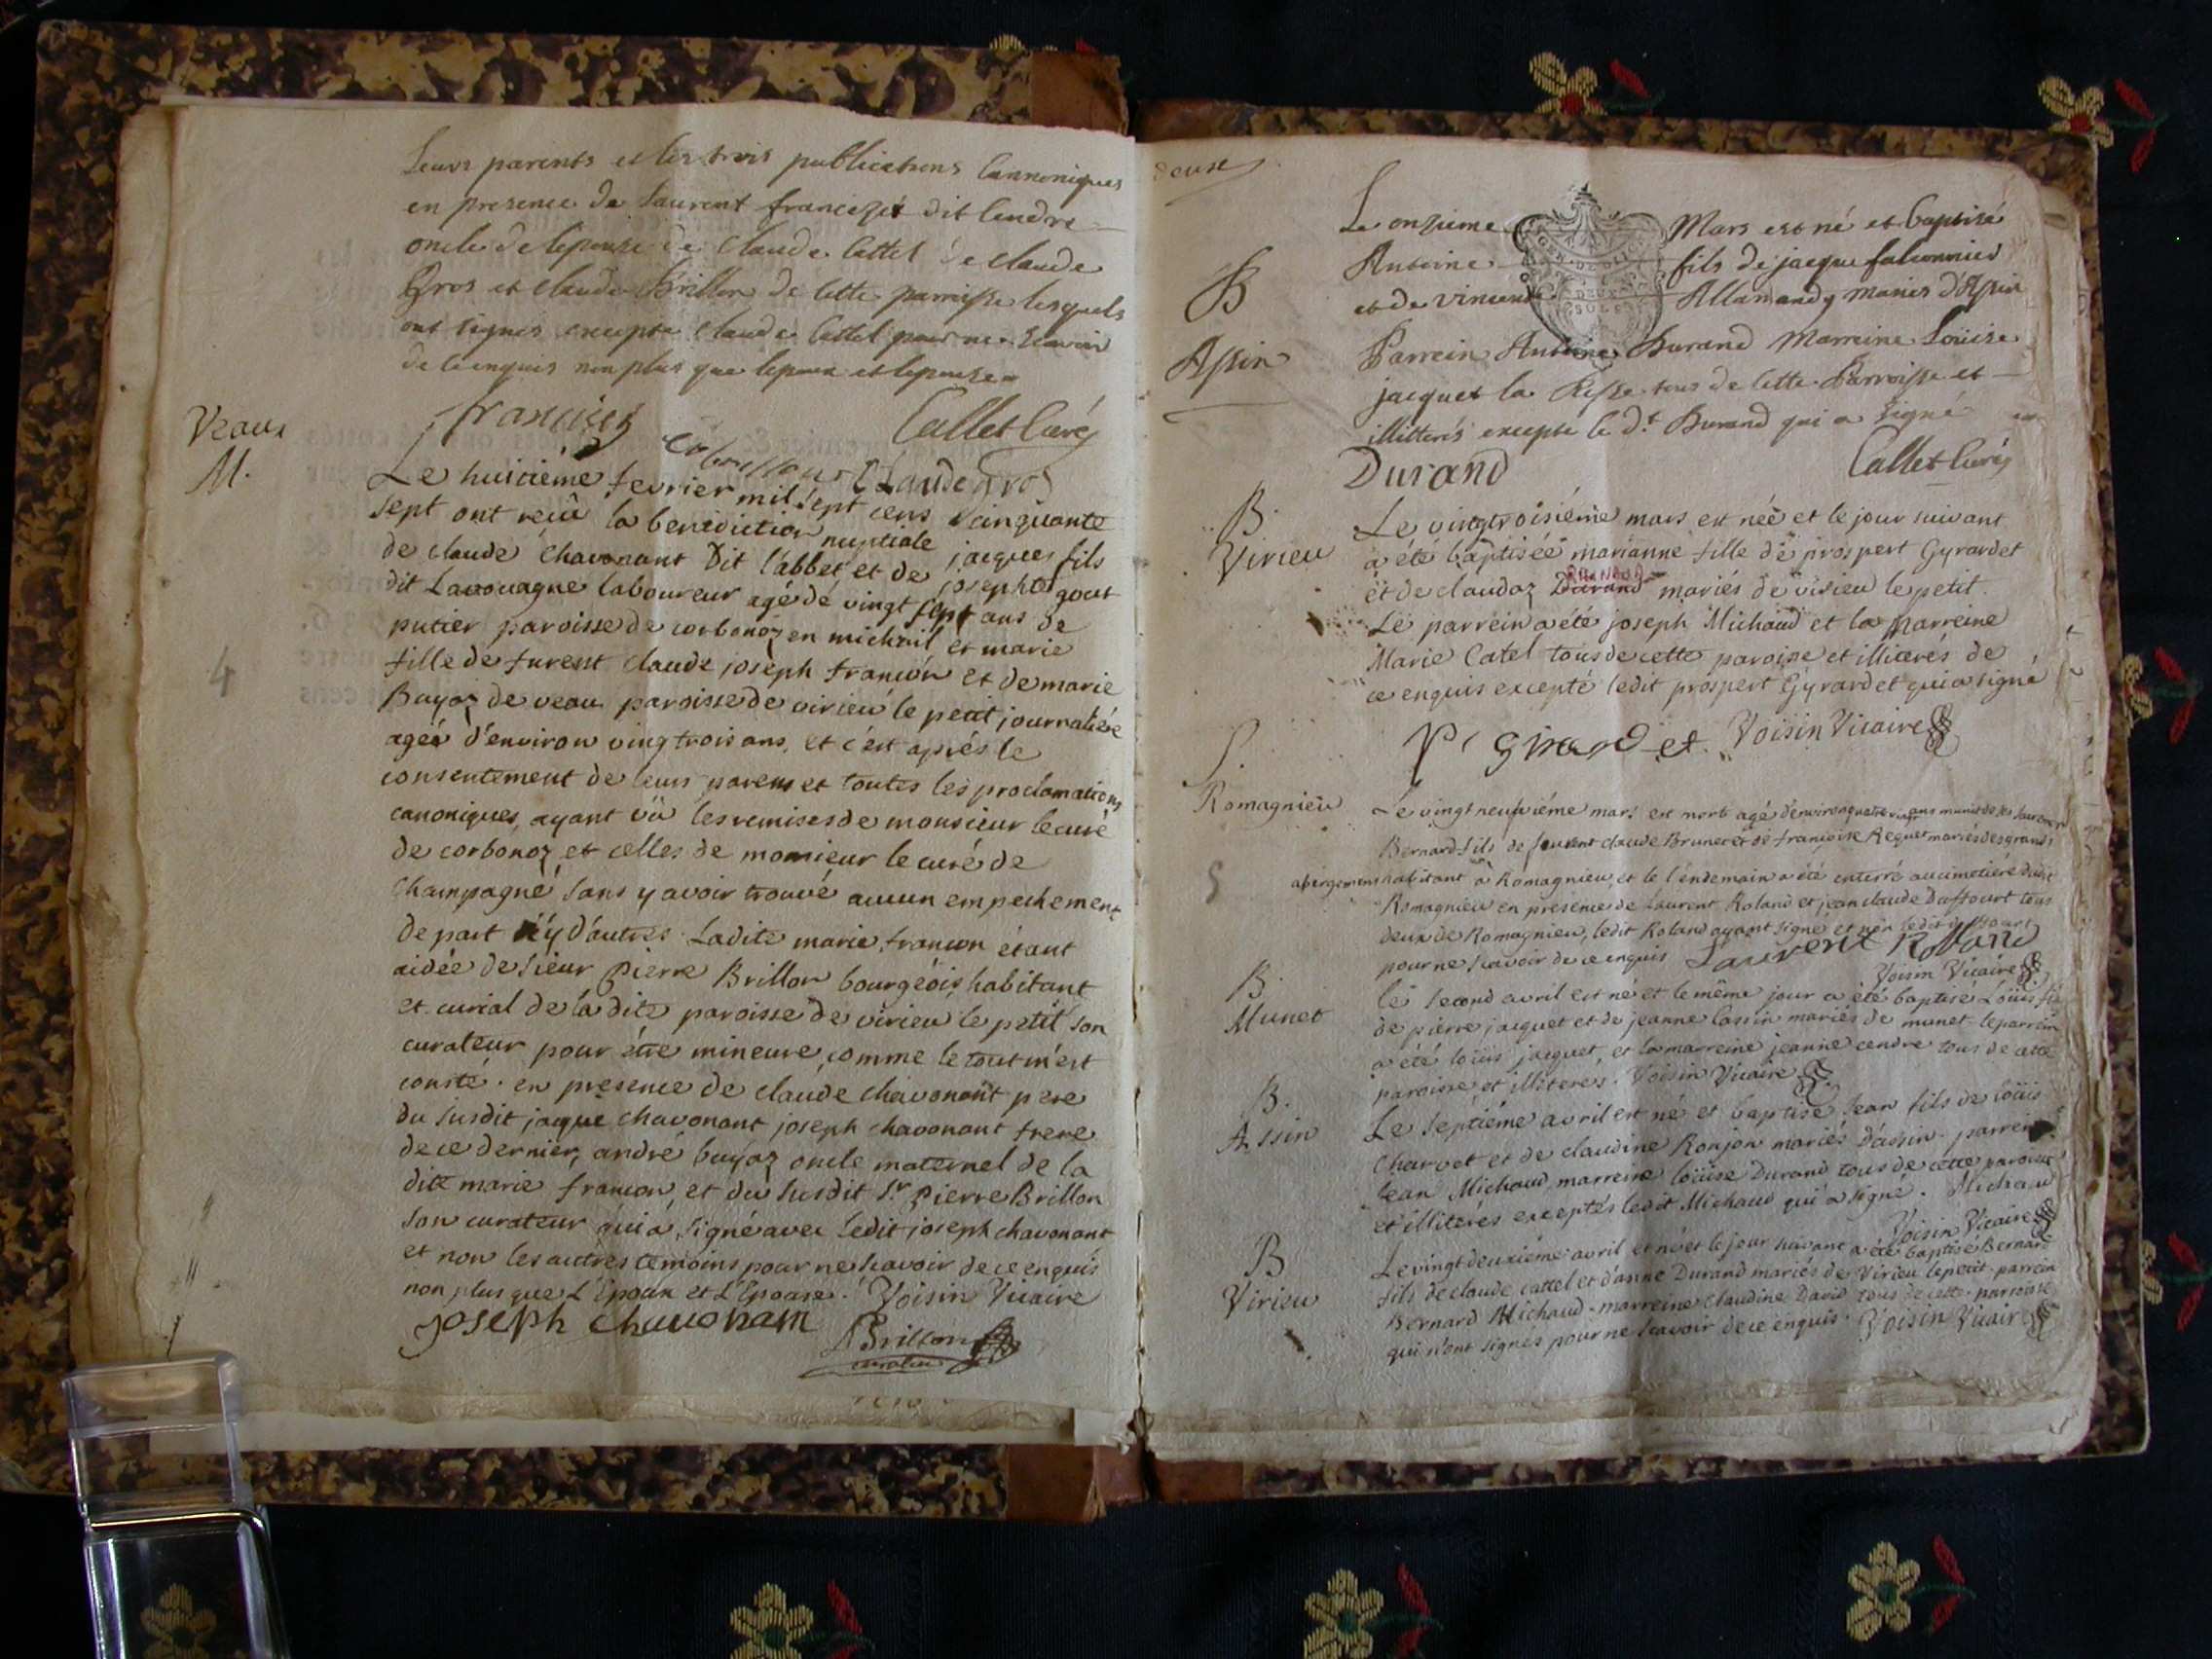 Leurs parents et les trois publications Cannoniques
en presence de Laurent francizet dit Cendre
oncle de lepouse de Claude Cattel de Claude
Gros et claude Brillon de Cette parroisse lesquels
ont signés excepté Claude Cattel pour ne scavoir
de ce enquis non plus que lepoux et lepouse
Callet Curé
Claude gros
Veaux
M.
Le huitiéme fevrier mil sept cens cinquante
sept ont reçû la benediction nuptiale jacques fils
de claude chavonant Dit l'abbet et de josephte gout
dit Lavouagne laboureur agé de vingt sept ans de
putier paroisse de corbonoz en michail et marie
fille de furent claude joseph francon et de marie
Buyoz de veau paroisse de virieu le petit journaliére
ageé d'environ vingtrois ans, et c'est aprés le
consentement de leurs parens et toutes les proclamations
canoniques, ayant vû les remises de monsieur le curé
de corbonoz et celles de monsieur le curé de
Champagne sans y avoir trouvé aucun empechement
de part n'y d'autres. Ladite marie francon étant
aidée de sieur pierre Brillon bourgeois habitant
et curial de la dite paroisse de virieu le petit son
curateur pour étre mineure, comme le tout m'est
consté. en presence de claude chavonant pere
du susdit jaque chavonant joseph chavonant frere
de ce dernier, andré buyoz oncle maternel de la
dite marie francon, et du susdit Sr. pierre Brillon
son curateur qui a signé avec ledit joseph chavonant
et non les autres temoins pour ne scavoir de ce enquis
non plus que L'Epoux et L'Epouse. Voisin Vicaire
joseph chavonam
Brillon
curateur
4
deuse
B
Assin
Le onzieme Mars est né et baptisé
Antoine fils de jacque falconnier
et de vincent Allamand mariés d'Assin
Parrein Antoine Durand Marreine Louise
jacquet la tous de Cette Parroisse et
illitterés excepté le dt. Durand qui a signé
Durand Callet Curé
B.
Virieu
Le vingtroisiéme mars est neé et le jour suivant
a été baptisée marianne fille de prospert Gyrardet
et de claudaz Durand mariés de virieu le petit.
Le parrein a été joseph Michaud et la marreine
Marie Catel tous de cette paroisse et illiterés de
ce enquis excepté ledit prospert Gyrardet qui a signé
P Girardet. Voisin Vicaire
S.
Romagnieu
5
Le vingt neuviéme mars est mort agé d'environ quatre vingt ans munis de ses sacremens
Bernard fils de furent claude Brunet et de francoise Requet mariés des grands
abergemens habitant a Romagnieu, et le l'endemain a été enterré au cimetiére dudit
Romagnieu en presence de Laurent Roland et jean claude Duffourt tous
deux de Romagnieu, ledit Roland ayant signé et non ledit Duffourt
pour ne scavoir de ce enquis Laurent Rolland
Voisin Vicaire
B.
Munet
le second avril est né et le même jour a été baptisé Loüis fils
de pierre jacquet et de jeanne Cassin mariés de munet le parrein
a été loüis jacquet, et la marreine jeanne cendre tous de cette
paroisse et illiterés. Voisin Vicaire
B.
Assin
Le septiéme avril est né et baptisé Jean fils de loüis
Charvet et de claudine Ronjon mariés d'assin. parrein
Jean Michaud marreine loüise Durand tous de cette paroisse
et illiterés exceptés ledit Michaud qui a signé. Michaud
Voisin Vicaire
B
Virieu
Le vingt deuxiéme avril est né et le jour suivant a été baptisé Bernard
fils de claude cattel et d'anne Durand mariés de Virieu le petit. parrein
Bernard Michaud. marreine claudine David tous de cette paroisse
qui n'ont signés pour ne scavoir de ce enquis. Voisin Vicaire